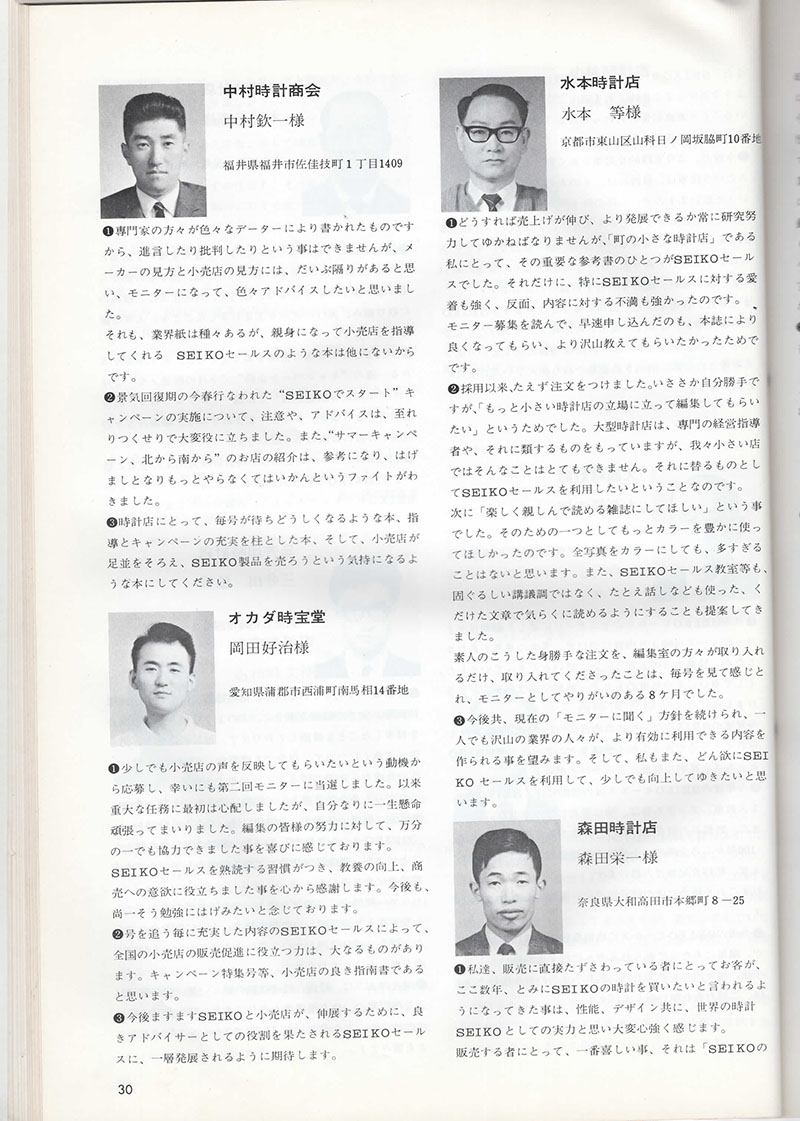 中村時計商会
中村欽一様
福井県福井市佐佳技町1丁目1409
❶専門家の方々が色々なデーターにより書かれたものです
から、進言したり批判したりという事はできませんが、メ
ーカーの見方と小売店の見方には、だいぶ隔りがあると思
い、モニターになって、色々アドバイスしたいと思いまし
た。
それも、業界紙は種々あるが、親身になって小売店を指導
してくれる SEIKOセールスのような本は他にないから
です。
❷景気回復期の今春行なわれた“SEIKOでスタート”キ
ャンペーンの実施について、注意や、アドバイスは、至れ
りつくせりで大変役に立ちました。また、“サマーキャンペ
ーン、北から南から”のお店の紹介は、参考になり、はげ
ましとなりもっとやらなくてはいかんというファイトがわ
きました。
❸時計店にとって、毎号が待ちどうしくなるような本、指
導とキャンペーンの充実を柱とした本、そして、小売店が
足並をそろえ、SEIKO製品を売ろうという気持になるよ
うな本にしてください。
オカダ時宝堂
岡田好治様
愛知県蒲郡市西浦町南馬相14番地
❶少しでも小売店の声を反映してもらいたいという動機か
ら応募し、幸いにも第二回モニターに当選しました。以来
重大な任務に最初は心配しましたが、自分なりに一生懸命
頑張ってまいりました。編集の皆様の努力に対して、万分
の一でも協力できました事を喜びに感じております。
SEIKOセールスを熟読する習慣がつき、教養の向上、商
売への意欲に役立ちました事を心から感謝します。今後も、
尚一そう勉強にはげみたいと念じております。
❷号を追う毎に充実した内容のSEIKOセールスによって、
全国の小売店の販売促進に役立つ力は、大なるものがあり
ます。キャンペーン特集号等、小売店の良き指南書である
と思います。
❸今後ますますSEIKOと小売店が、伸展するために、良
きアドバイサーとしての役割を果たされるSEIKOセール
スに、一層発展されるように期待します。
30
水本時計店
水本 等様
京都市東山区山科日ノ岡坂脇町10番地
❶どうすれば売上げが伸び、より発展できるか常に研究努
力してゆかねばなりませんが、「町の小さな時計店」である
私にとって、その重要な参考書のひとつがSEIKOセール
スでした。それだけに、特にSEIKOセールスに対する愛
着も強く、反面、内容に対する不満も強かったのです。
モニター募集を読んで、早速申し込んだのも、本誌により
良くなってもらい、より沢山教えてもらいたかったためで
です。
❷採用以来、たえず注文をつけました。いささか自分勝手で
すが、「もっと小さい時計店の立場に立って編集してもらい
たい」というためでした。大型時計店は、専門の経営指導
者や、それに類するものをもっていますが、我々小さい店
ではそんなことはとてもできません。それに替るものとし
てSEIKOセールスを利用したいということなのです。
次に「楽しく親しんで読める雑誌にしてほしい」という事
でした。そのための一つとしてもっとカラーを豊かに使っ
てほしかったのです。全写真をカラーにしても、多すぎる
ことはないと思います。また、SEIKOセールス教室等も、
固ぐるしい講議調ではなく、たとえ話しなども使った、く
だけた文章で気らくに読めるようにすることも提案してき
ました。
素人のこうした身勝手な注文を、編集室の方々が取り入れ
るだけ、取り入れてくださったことは、毎号を見て感じと
れ、モニターとしてやりがいのある8ケ月でした。
❸今後共、現在の「モニターに聞く」方針を続けられ、一
人でも沢山の業界の人々が、より有効に利用できる内容を
作られる事を望みます。そして、私もまた、どん欲にSEI
KO セールスを利用して、少しでも向上してゆきたいと思
います。
森田時計店
森田栄一様
奈良県大和高田市本郷町8－25
❶私達、販売に直接たずさわっている者にとってお客が、
ここ数年、とみにSEIKOの時計を買いたいと言われるよ
うになってきた事は、性能、デザイン共に、世界の時計
SEIKOとしての実力と思い大変心強く感じます。
販売する者にとって、一番喜しい事、それは「SEIKOの